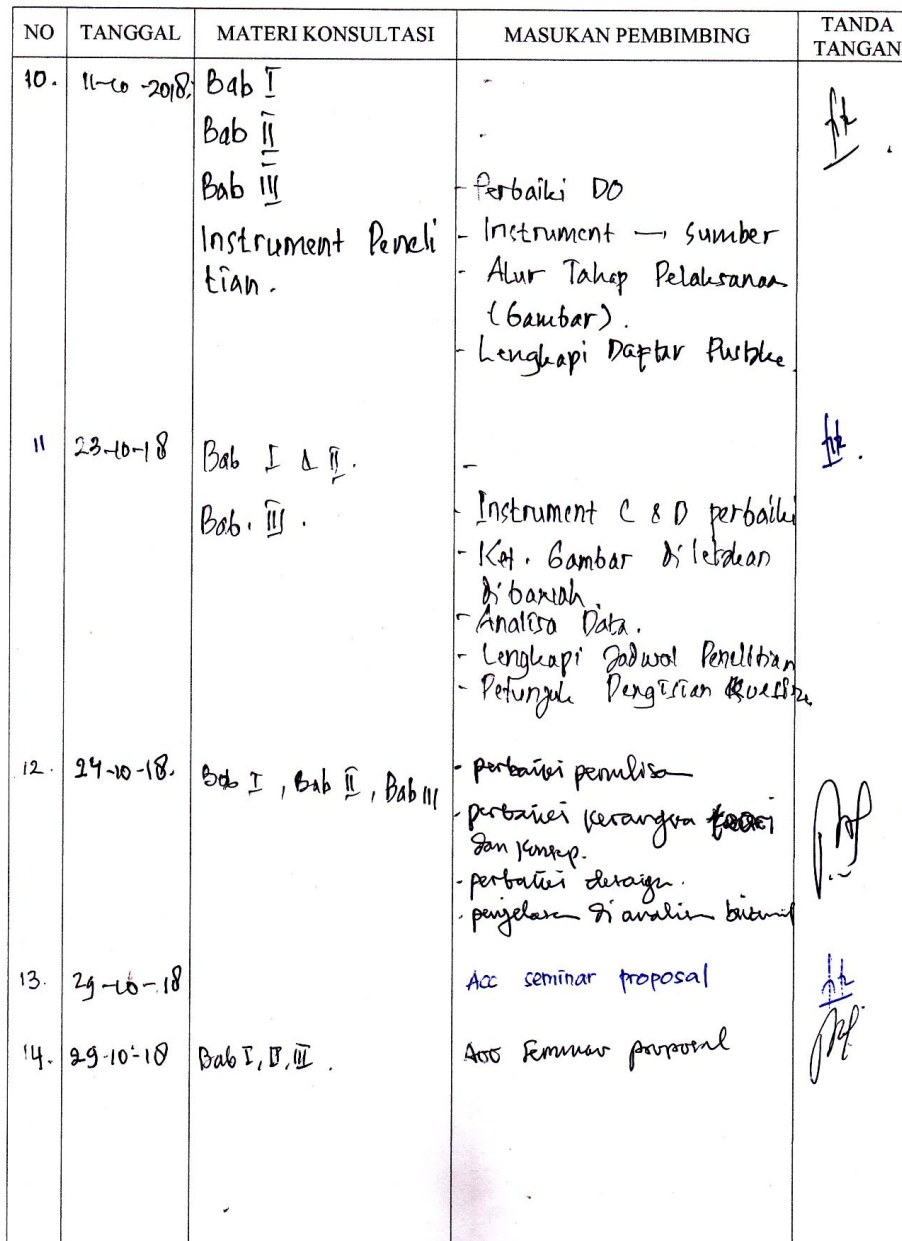 NO TANGGAL MATERI KONSULTASI MASUKAN PEMBIMBING TANDA TANGAN
10. 11-10-2018. Bab I -
Bab II -
Bab III - Perbaiki DO
Instrument Peneli - Instrument → Sumber
tian. - Alur Tahap Pelaksanaan
(Gambar).
- Lengkapi Daftar
11 23-10-18 Bab I & II. -
Bab. III. - Instrument C & D perbaiki
- Ket. Gambar diletakan
dibawah.
- Analisa Data.
- Lengkapi Jadwal Penelitian
- Petunjuk Pengisian
12. 24-10-18. Bab I, Bab II, Bab III - perbaiki penulisan
- perbaiki kerangka
dan konsep.
- perbaiki
- penjelasan di analisa
13. 29-10-18 Acc seminar proposal
14. 29-10-18 Bab I, II, III. Acc Seminar proposal